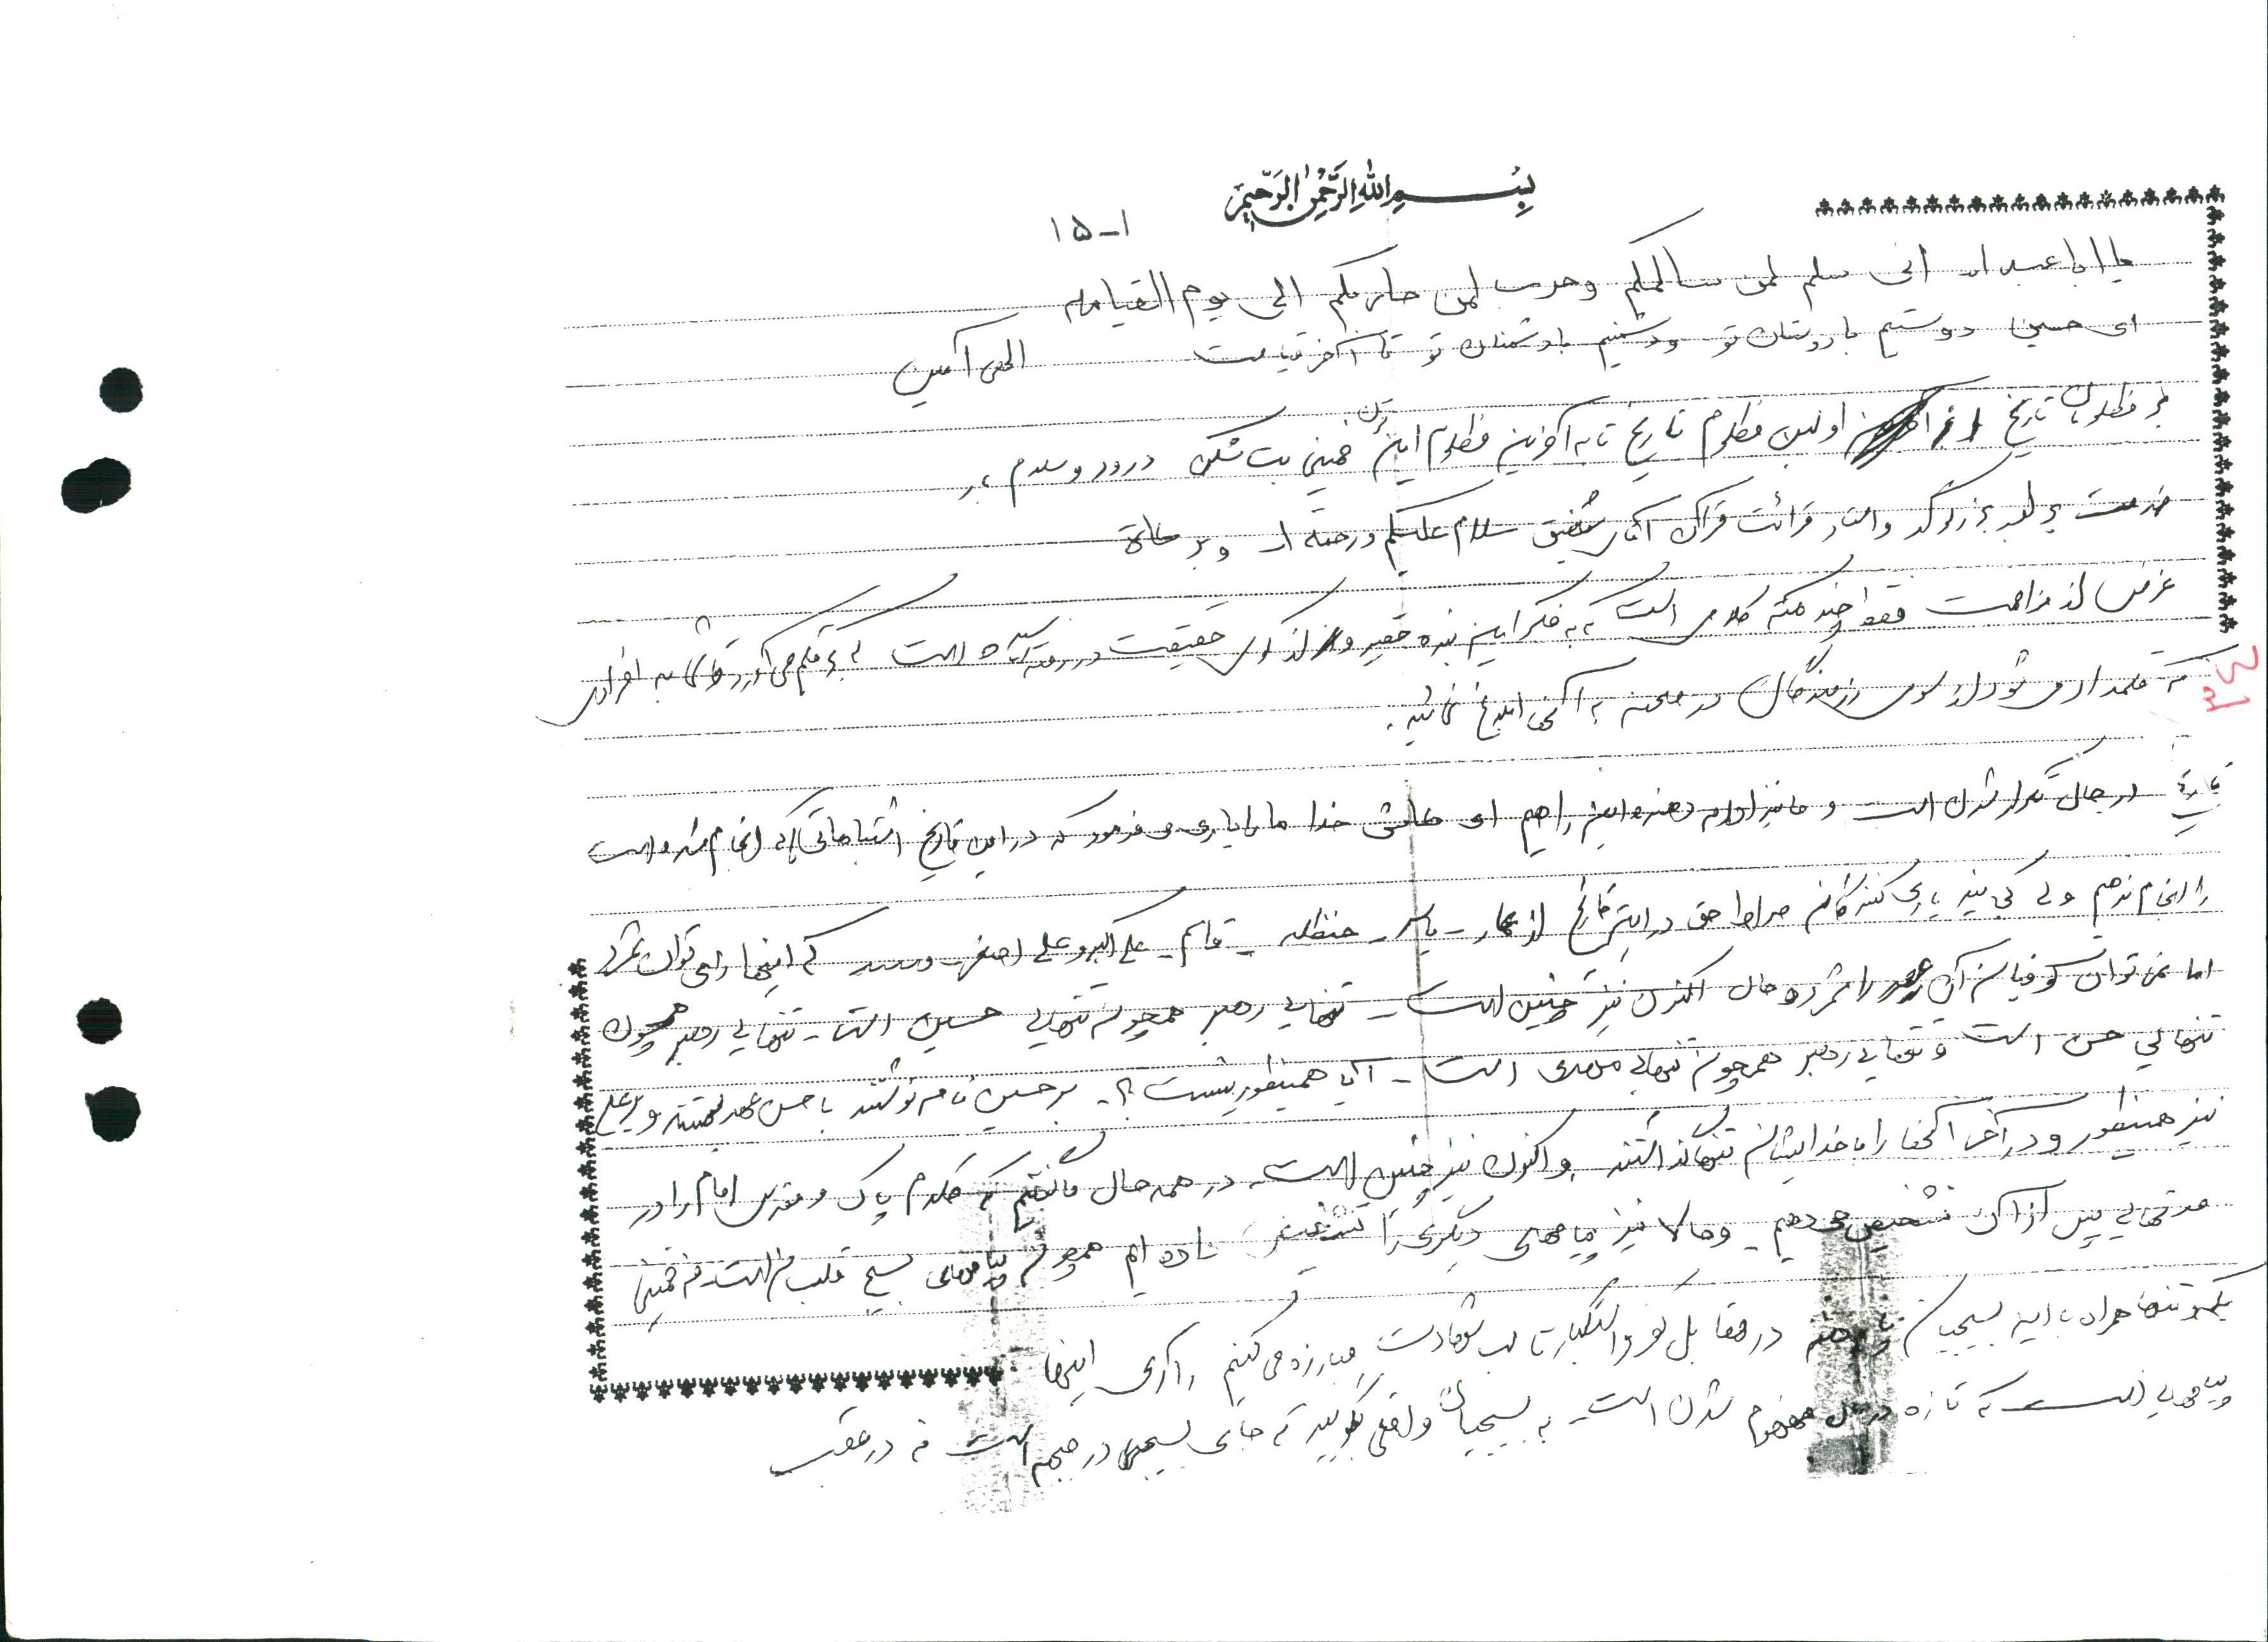 بسم الله الرحمن الرحیم
۱۵-۱
یا ابا عبد ا... انی سلم لمن سالمکم و حرب لمن حاربکم الی یوم القیامه
ای حسین دوستیم با دوستان تو و دشمنیم با دشمنان تو تا آخر قیامت الهی آمین
بر مظلومان تاریخ از اولین مظلوم تاریخ تا به آخرین مظلوم این قرن خمینی بت شکن درود و سلام بر
خدمت برادر بزرگوار و استاد قرائت قرآن آقای شفیق سلام علیکم و رحمة ا... و برکاته
غرض از مزاحمت فقط چند نکته کلامی است که به فکر این بنده حقیر و از کوی حقیقت در رسیده است که به قلم می آورد به افرادی
که قلمداد می شود از سوی رزمندگان در صحنه به آنها ابلاغ نمائید.
تاریخ در حال تکرار شدن است و ما نیز ادامه دهنده این راهیم ای کاش خدا ما را یاری می فرمود که در این تاریخ اشتباهاتی که انجام شده است
را انجام ندهیم ولی کجایند یاری کنندگان صراط حق در این تاریخ از عمار - یاسر - حنظله - قاسم - علی اکبر و علی اصغر و ... که اینها را می توان شمرد
اما نمی توان کوفیان آن عصر را شمرد و حال اکنون نیز چنین است - تنهایی رهبر همچون تنهایی حسین است - تنهایی رهبر همچون
تنهایی حسن است و تنهایی رهبر همچون تنهایی علی است - آیا همینطور نیست؟. بر حسین نامه نوشتند با حسن عهد بستند و بر علی
نیز همینطور و در آخر آنها را با خدایشان تنها گذاشتند و اکنون نیز چنین است. در همه حال ما گفتیم که کلام پاک و مقدس امام را در
مدتهایی پس از آن تشخیص می دهیم - و حالا نیز پیامهای دیگری را داده ام همچون پیامهای بسیج قلب من است نه خمینی
یکه و تنها همراه با این بسیجیان در مقابل کفر و استکبار تا لب شهادت مبارزه می کنیم آری اینها
پیامهایی است که تازه در حال مفهوم شدن است - به بسیجیان واقعی بگویید که جای بسیجی در جبهه است نه در عقب